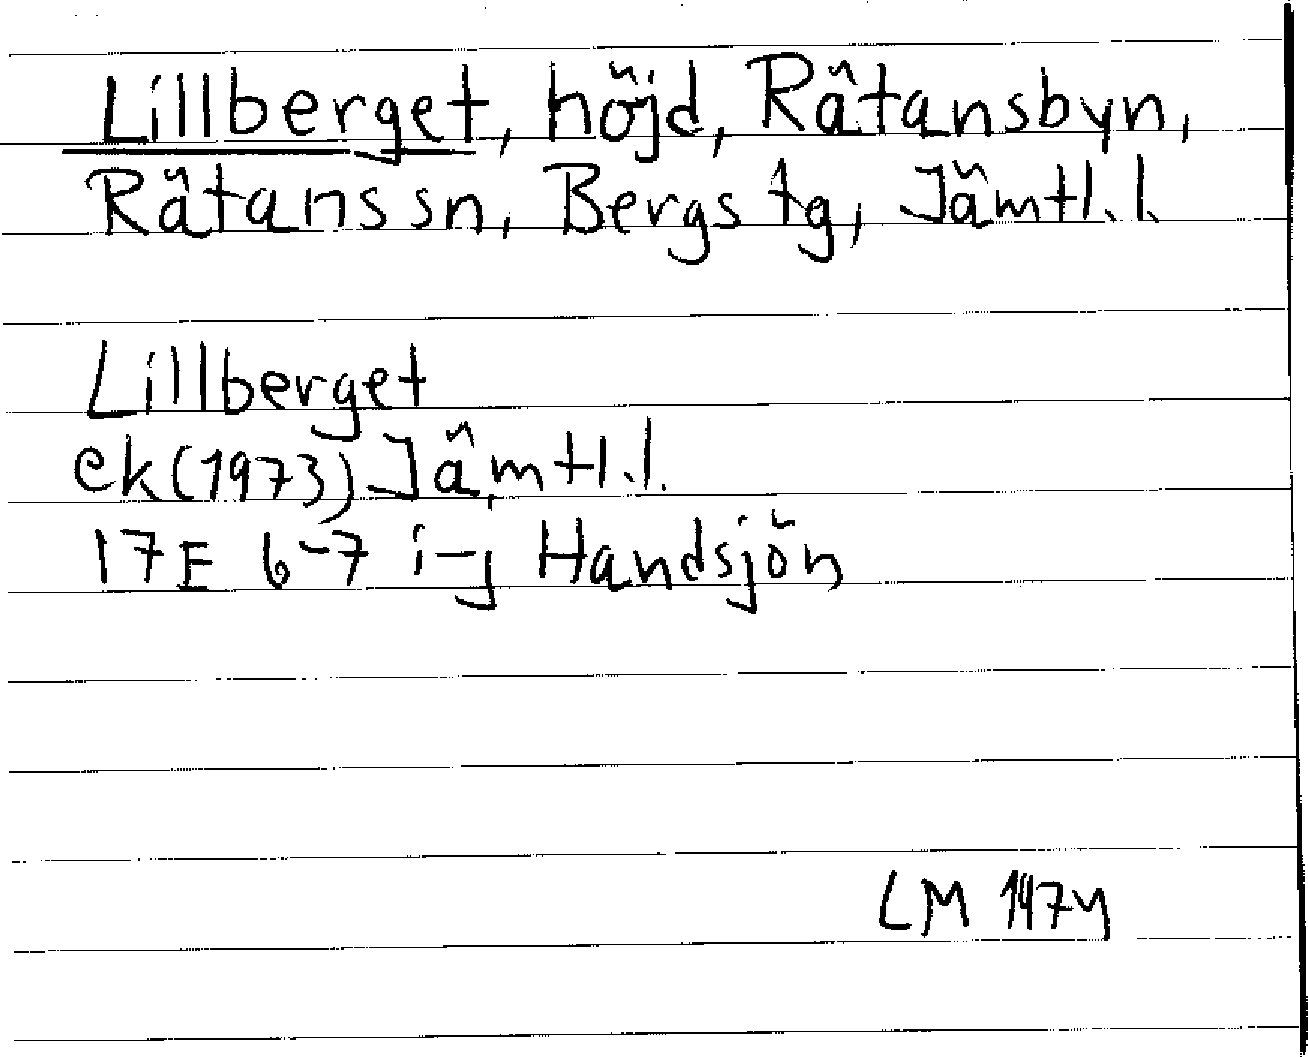 Lillberget, höjd, Rätansbyn,
Rätans sn, Bergs tg, Jämtl.l.
Lillberget
ek(1973) Jämtl.l.
17E 6-7 i-j Handsjön
LM 1974